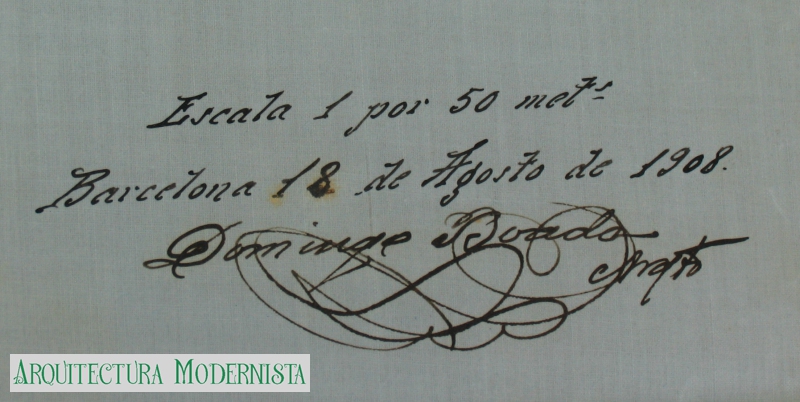 Escala 1 por 50 metˢ
Barcelona 18 de Agosto de 1908.
Domingo Boada
Arqto
ARQUITECTURA MODERNISTA